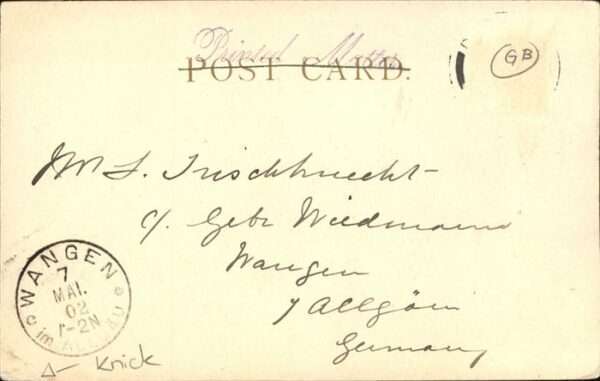 Printed Matter
POST CARD.
GB
Mr S. Frischknecht
c/. Gebr Wiedmann
Wangen
y Allgäu
Germany
WANGEN
7
MAI.
02
1-2N
im ALLGÄU
Knick